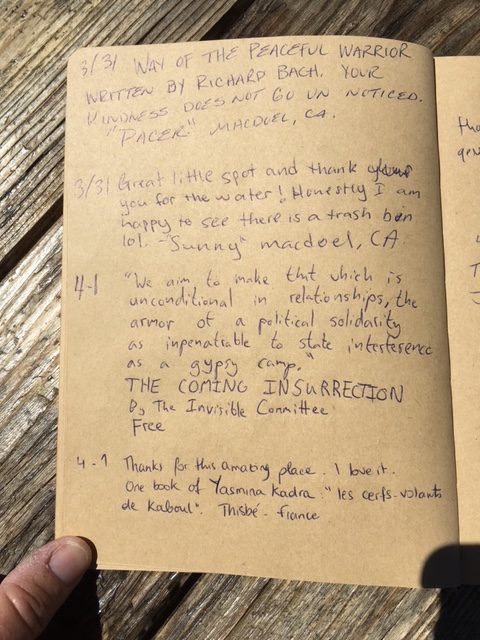 3/31 WAY OF THE PEACEFUL WARRIOR
WRITTEN BY RICHARD BACH. YOUR
KINDNESS DOES NOT GO UN NOTICED.
"PACER" MACDOEL, CA.
3/31 Great little spot and thank
you for the water! Honestly I am
happy to see there is a trash bin
lol. -"Sunny" macdoel, CA
4-1 "We aim to make that which is
unconditional in relationships, the
armor of a political solidarity
as inpenatrable to state interference
as a gypsy camp."
THE COMING INSURRECTION
By The Invisible Committee
Free
4-1 Thanks for this amazing place. I love it.
One book of Yasmina Kadra: "les cerfs-volants
de Kaboul". Thisbé - France
tha
gen